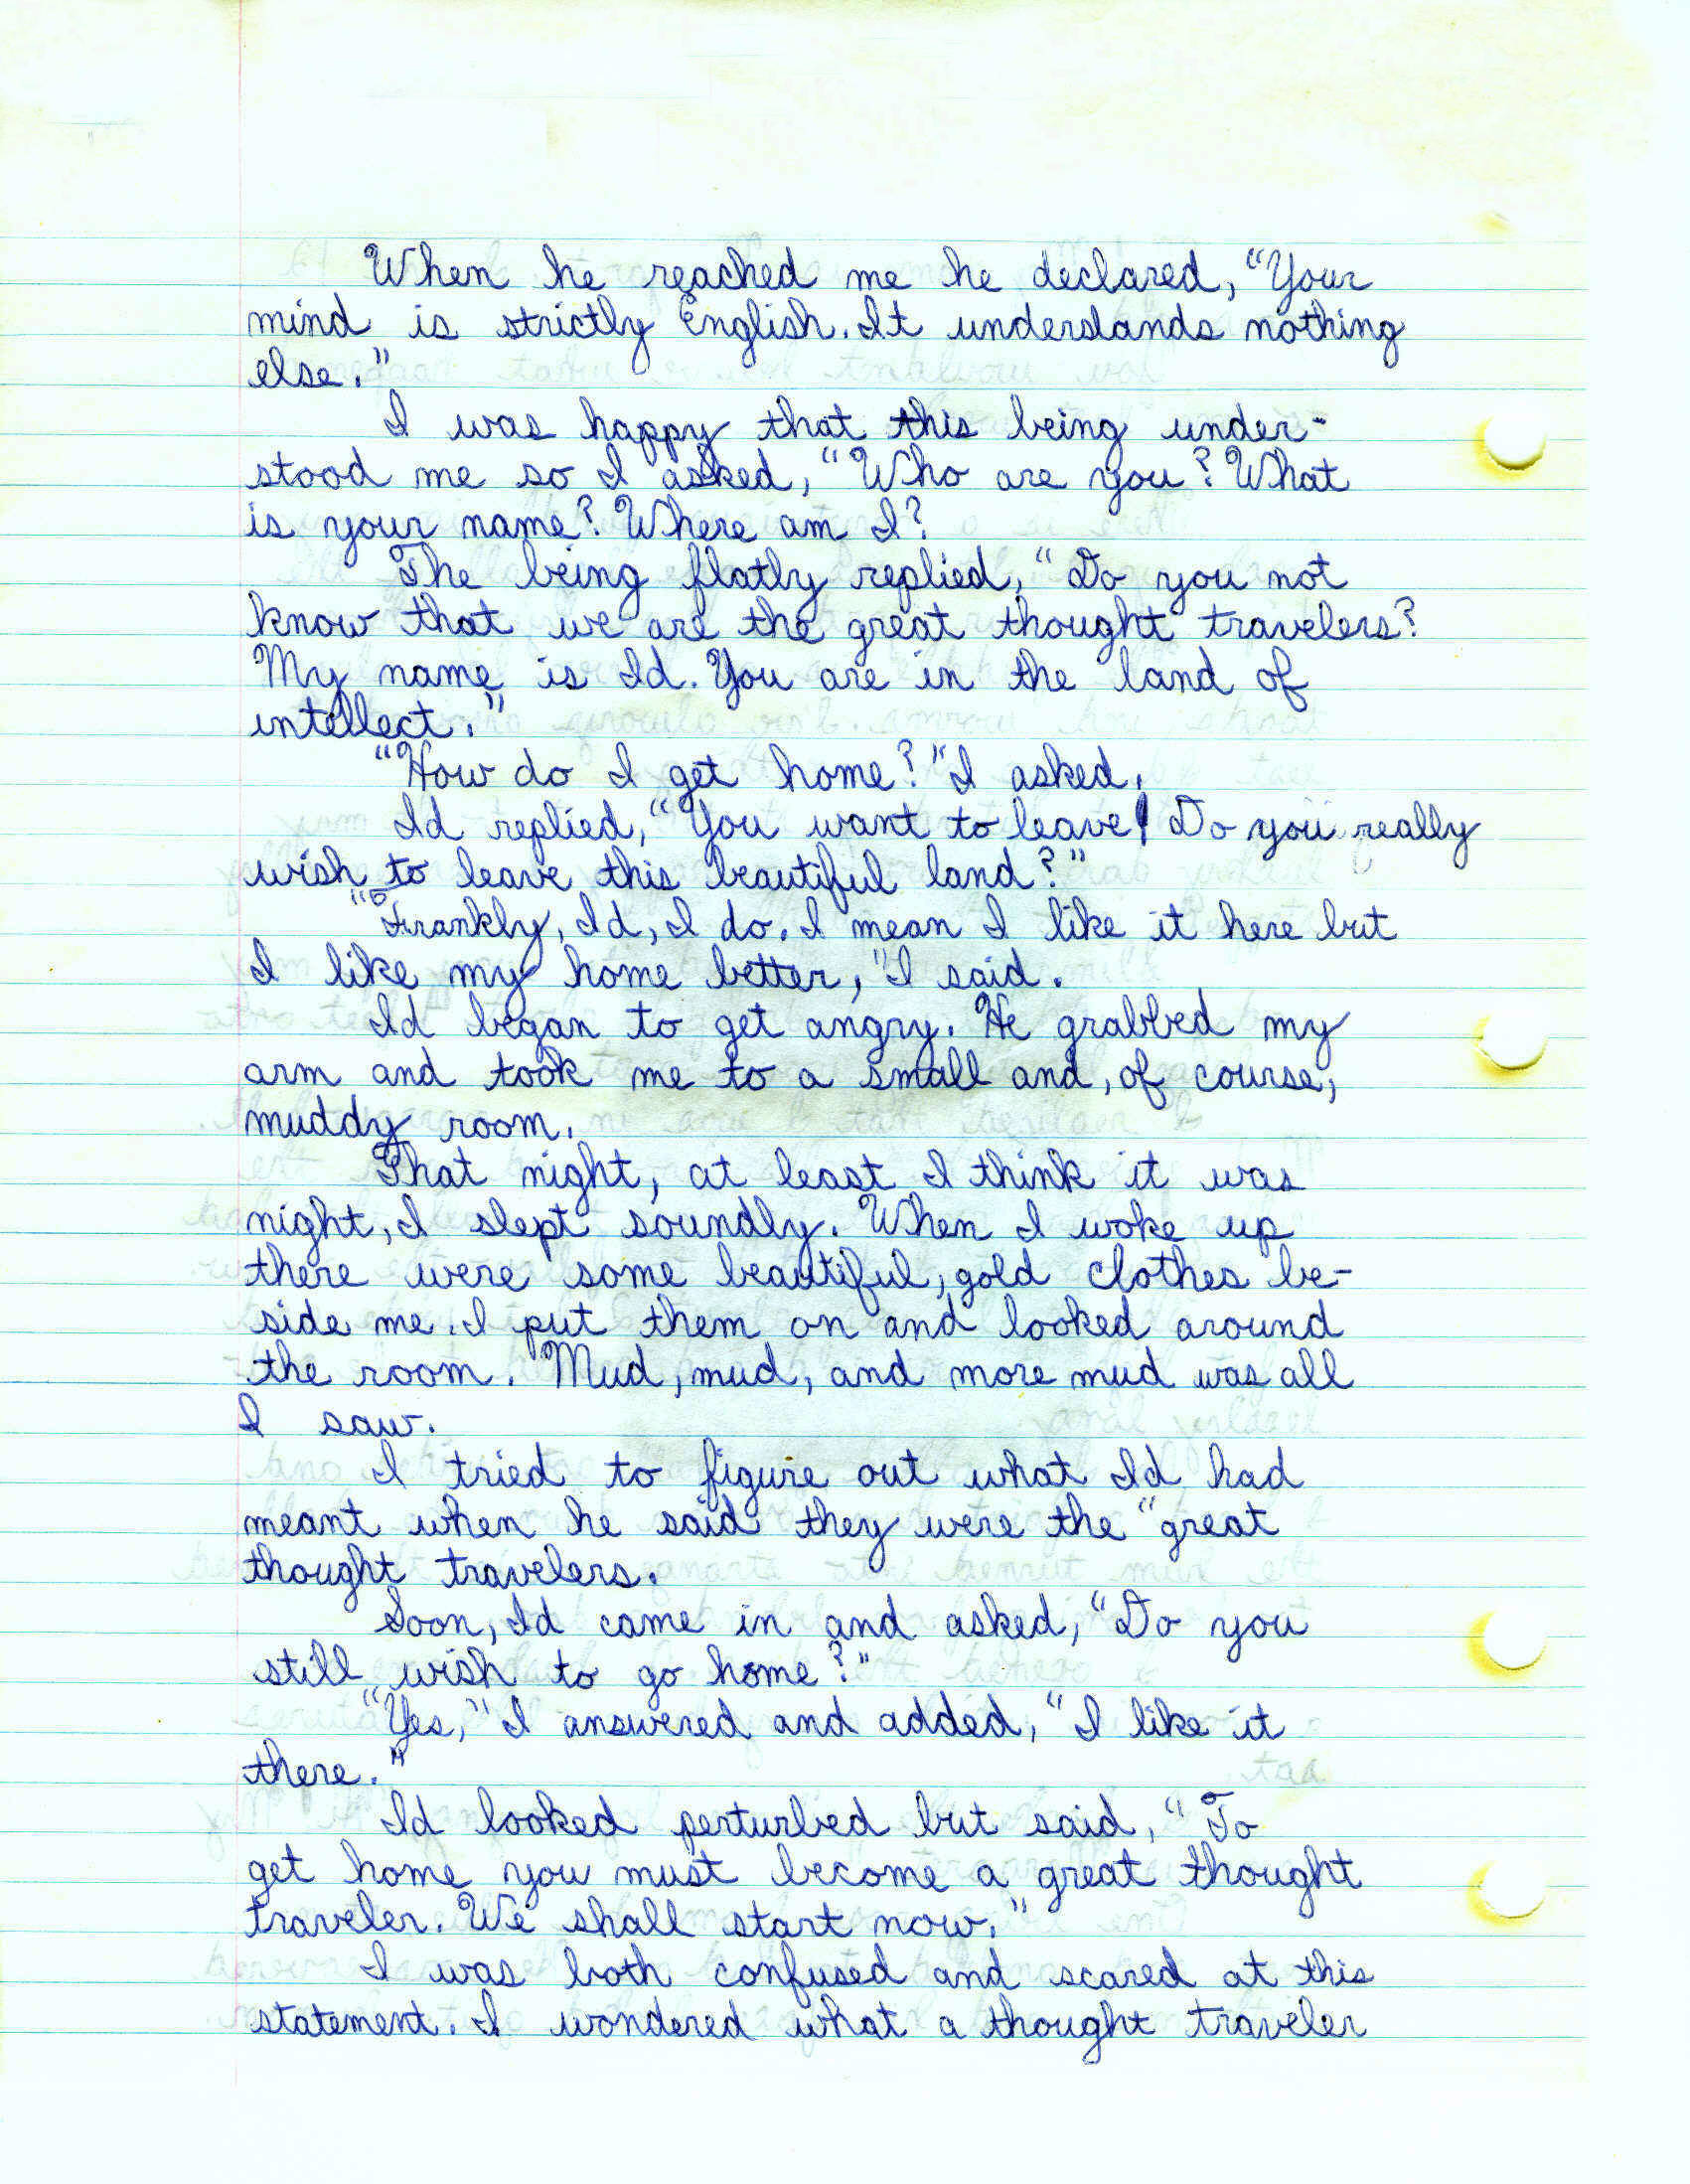 When he reached me he declared, "Your
mind is strictly English. It understands nothing
else."
I was happy that this being under-
stood me so I asked, "Who are you? What
is your name? Where am I?
The being flatly replied, "Do you not
know that we are the great thought travelers?
My name is Id. You are in the land of
intellect."
"How do I get home?" I asked.
Id replied, "You want to leave! Do you really
wish to leave this beautiful land?"
"Frankly, Id, I do. I mean I like it here but
I like my home better," I said.
Id began to get angry. He grabbed my
arm and took me to a small and, of course,
muddy room.
That night, at least I think it was
night, I slept soundly. When I woke up
there were some beautiful, gold clothes be-
side me. I put them on and looked around
the room. Mud, mud, and more mud was all
I saw.
I tried to figure out what Id had
meant when he said they were the "great
thought travelers.
Soon, Id came in and asked, "Do you
still wish to go home?"
"Yes," I answered and added, "I like it
there."
Id looked perturbed but said, "To
get home you must become a great thought
traveler. We shall start now."
I was both confused and scared at this
statement. I wondered what a thought traveler